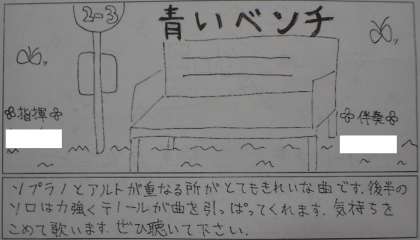 2-3
青いベンチ
✿指揮✿
✿伴奏✿
ソプラノとアルトが重なる所がとてもきれいな曲です。後半の
ソロは力強くテノールが曲を引っぱってくれます。気持ちを
こめて歌います。ぜひ聴いて下さい。